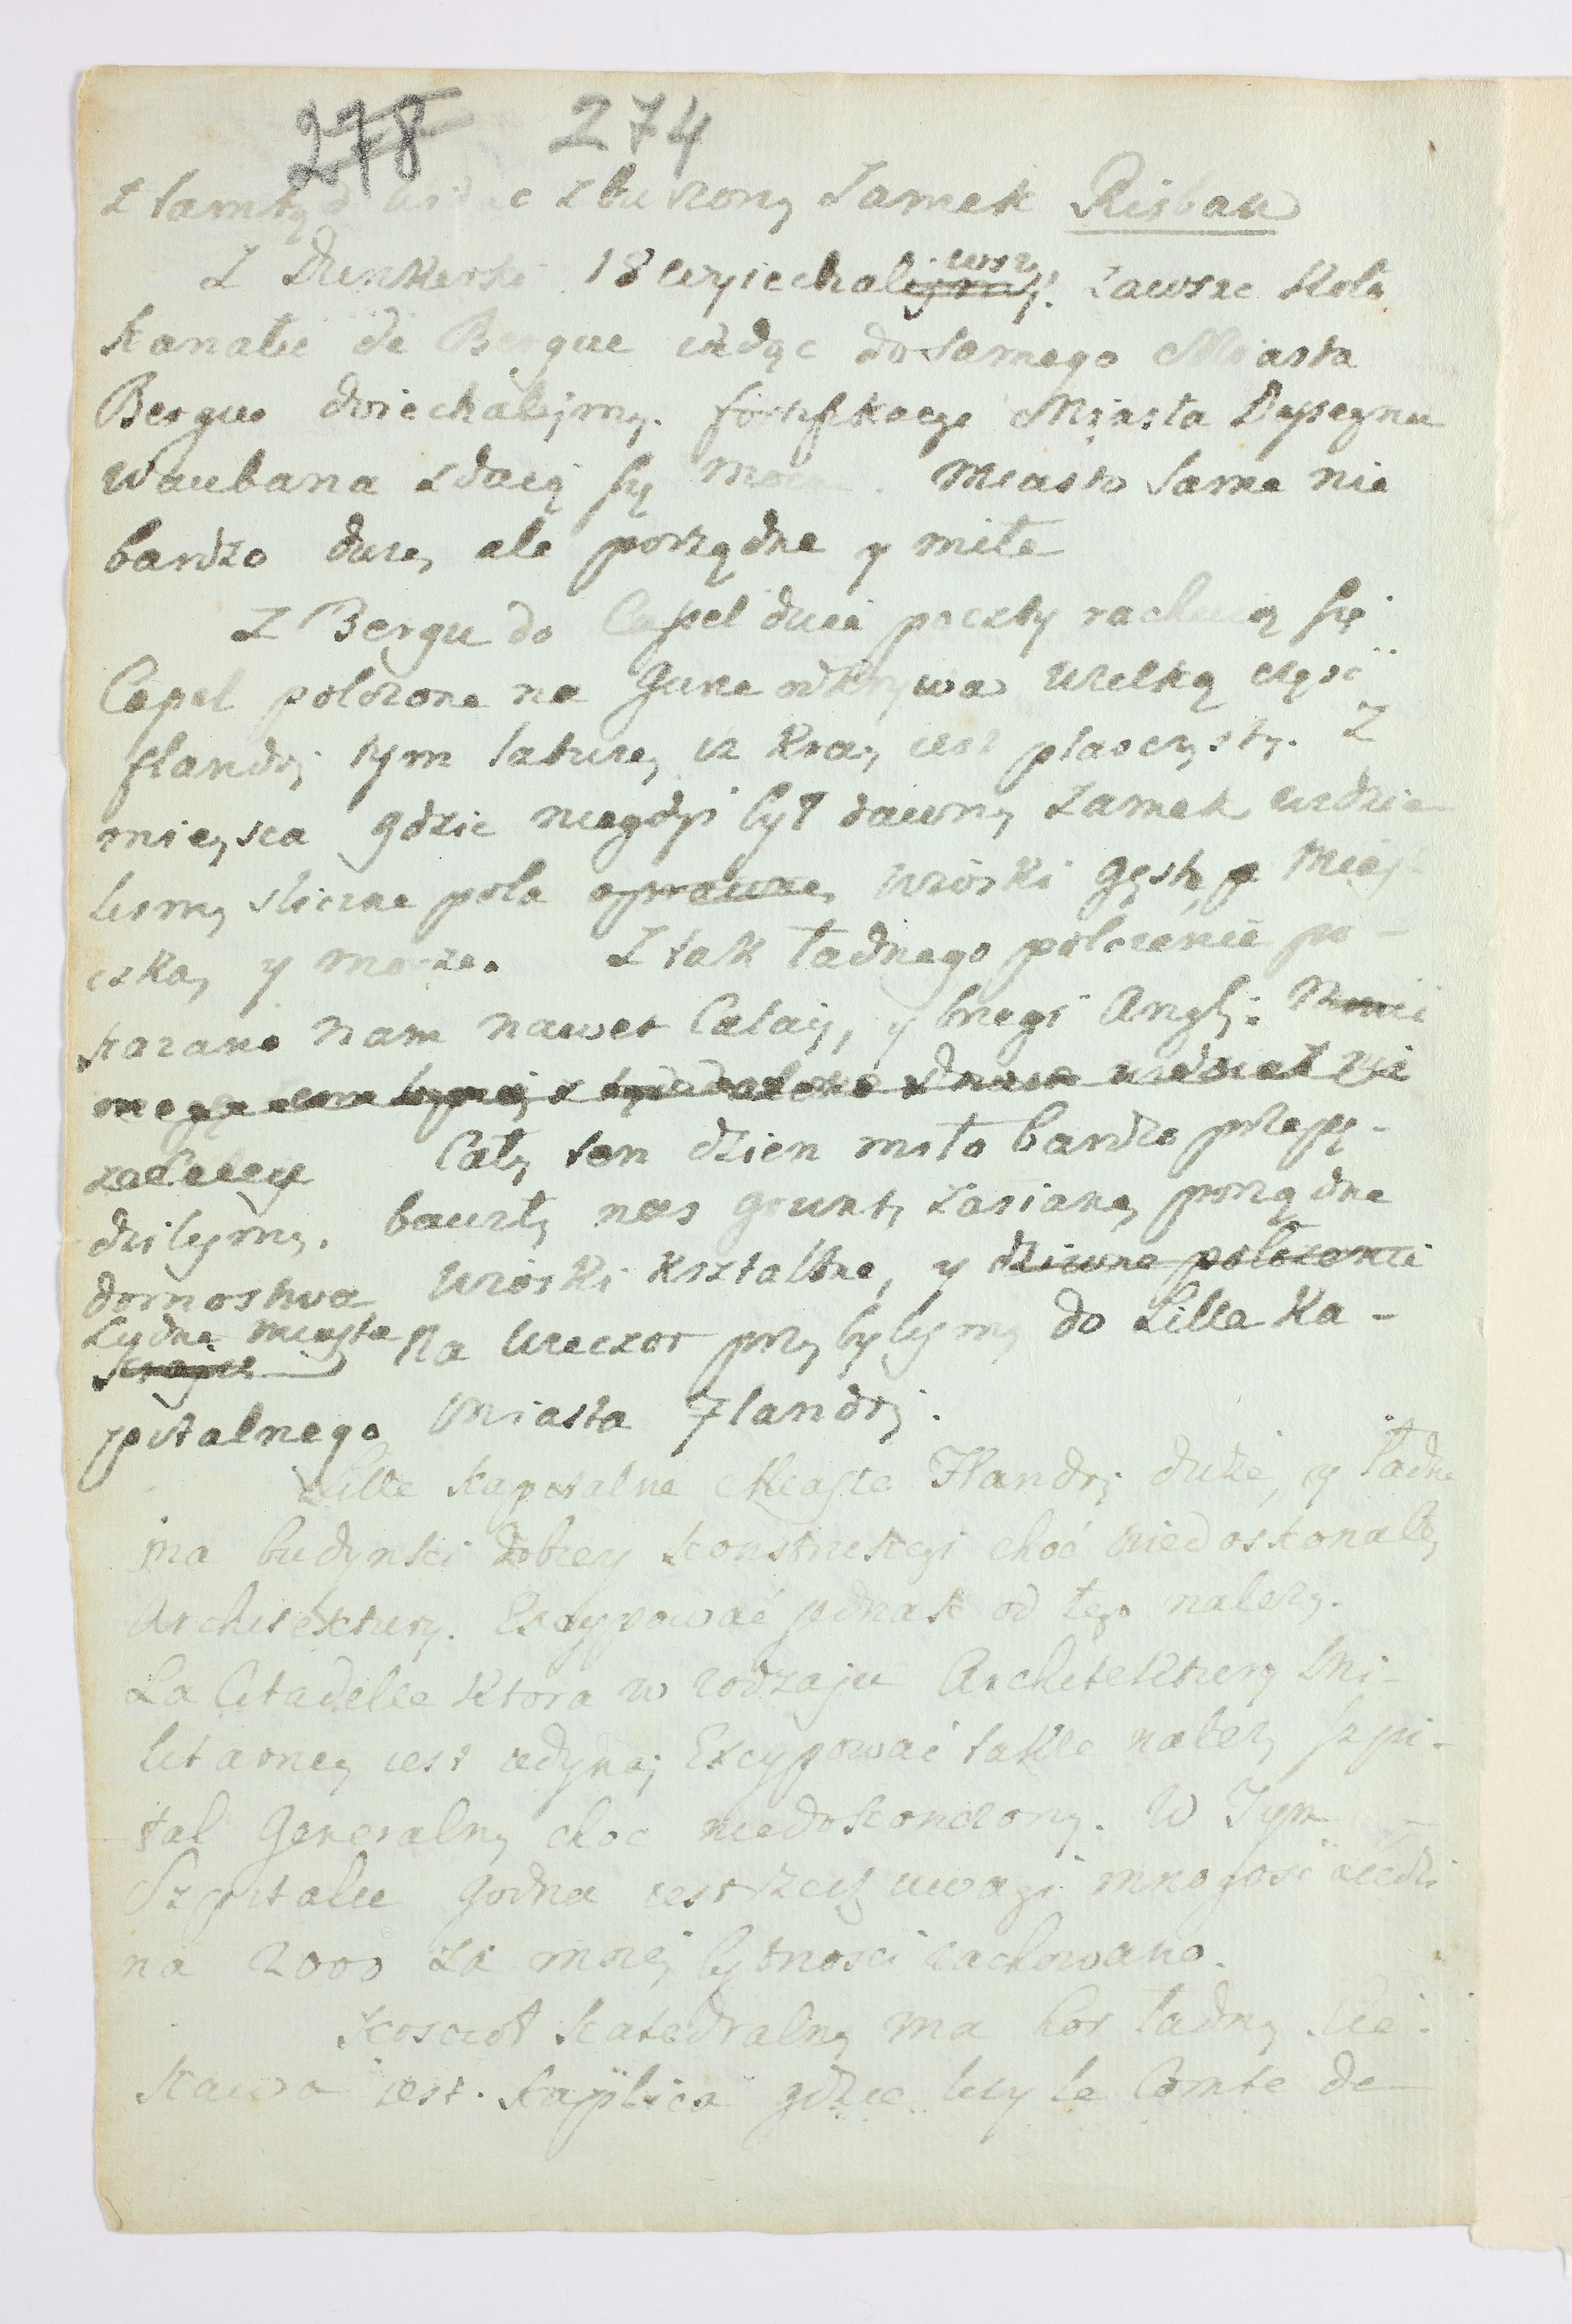 278 274
z tamtąd widac zburzony Zamek Risbau
Z Dunkerki 18 wyiechaliwszy. zawsze koło
kanału de Bergue iadąc do samego Miasta
Bergue doiechalismy. fortyfikacye Miasta Dyseynu
Waubana zdaią się moc. Miasto same nie
bardzo duze, ale porządne y miłe
Z Bergu do Capel dwie poczty rachuią się
Capel polozone na Gurze odkrywa wielką częsc
flandrj tym latwiey iz kray iest płasczysty. Z
mieysca gdzie niegdys był dawny zamek widzie
lismy sliczne pola oprawne, wioski gęste, Mias-
teczka, y morze. Z tak ładnego polozenia po-
kazano nam nawet Calais, y brzegi Anglj:
za Calais Cały ten dzien miło bardzo przepę-
dzilismy. bawiły nas grunta zasiane, porządne
domostwa wioski kształtne, y dziwne polozenie
Ludne miasta Na wieczor przybylismy do Lille Ka-
pitalnego Miasta Flandrj.
Lille kapitalne Miasto Flandrj duże, y ładne
ma budynki dobrey konstrukcyi choć niedoskonałey
Architektury. Excypować jednak od tego nalezy.
La Citadelle ktora w rodzaju Architektury Mi-
litarney iest iedyną; Excypować także nalezy szpi-
tal Generalny choc niedokonczony. W Tym
Szpitalu godna iest rzecz uwagi mnogosć ludzi
na 2000 za mniej bytnosci rachowano.
Kosciot Katedralny ma Cor ładny. Cie-
kawa iest Kaplica gdzie lezy le Comte de